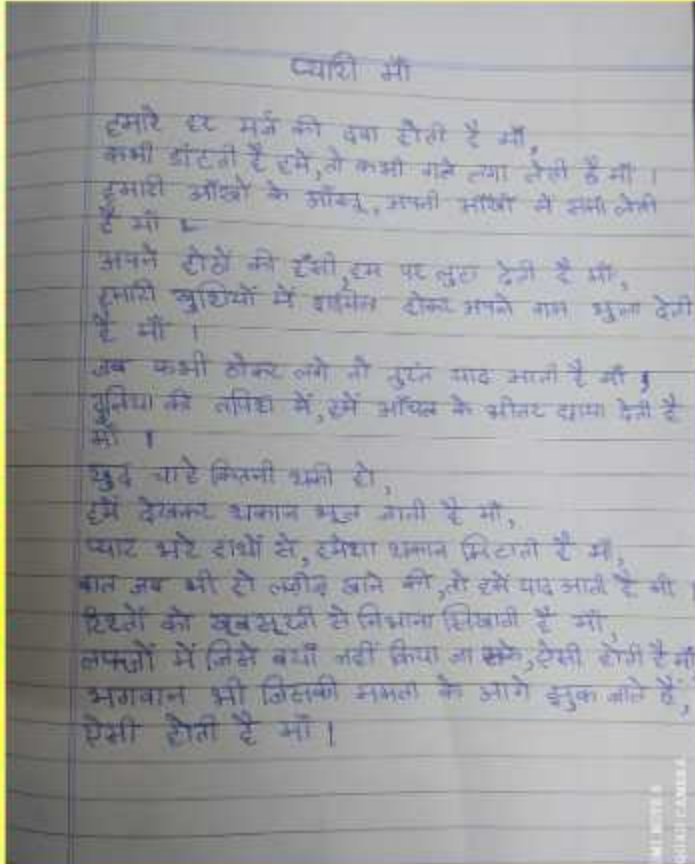 प्यारी माँ
हमारे हर मर्ज की दवा होती है माँ,
कभी डांटती है हमें, तो कभी गले लगा लेती है माँ ।
हमारी आँखों के आँसू, अपनी आँखों में समा लेती
है माँ ।
अपने होठों की हँसी, हम पर लुटा देती है माँ,
हमारी खुशियों में शामिल होकर अपने गम भुला देती
है माँ ।
जब कभी ठोकर लगे तो तुरंत याद आती है माँ ,
दुनिया की तपिश में, हमें आँचल के भीतर छाया देती है
माँ ।
खुद चाहे कितनी थकी हो,
हमें देखकर थकान भूल जाती है माँ,
प्यार भरे हाथों से, हमेशा थकान मिटाती है माँ,
बात जब भी हो लजीज खाने की, तो हमें याद आती है माँ ।
रिश्तों को खूबसूरती से निभाना सिखाती है माँ,
लफ्जों में जिसे बयाँ नहीं किया जा सके, ऐसी होती है माँ
भगवान भी जिसकी ममता के आगे झुक जाते हैं,
ऐसी होती है माँ ।
MI NOTE 8
QUAD CAMERA